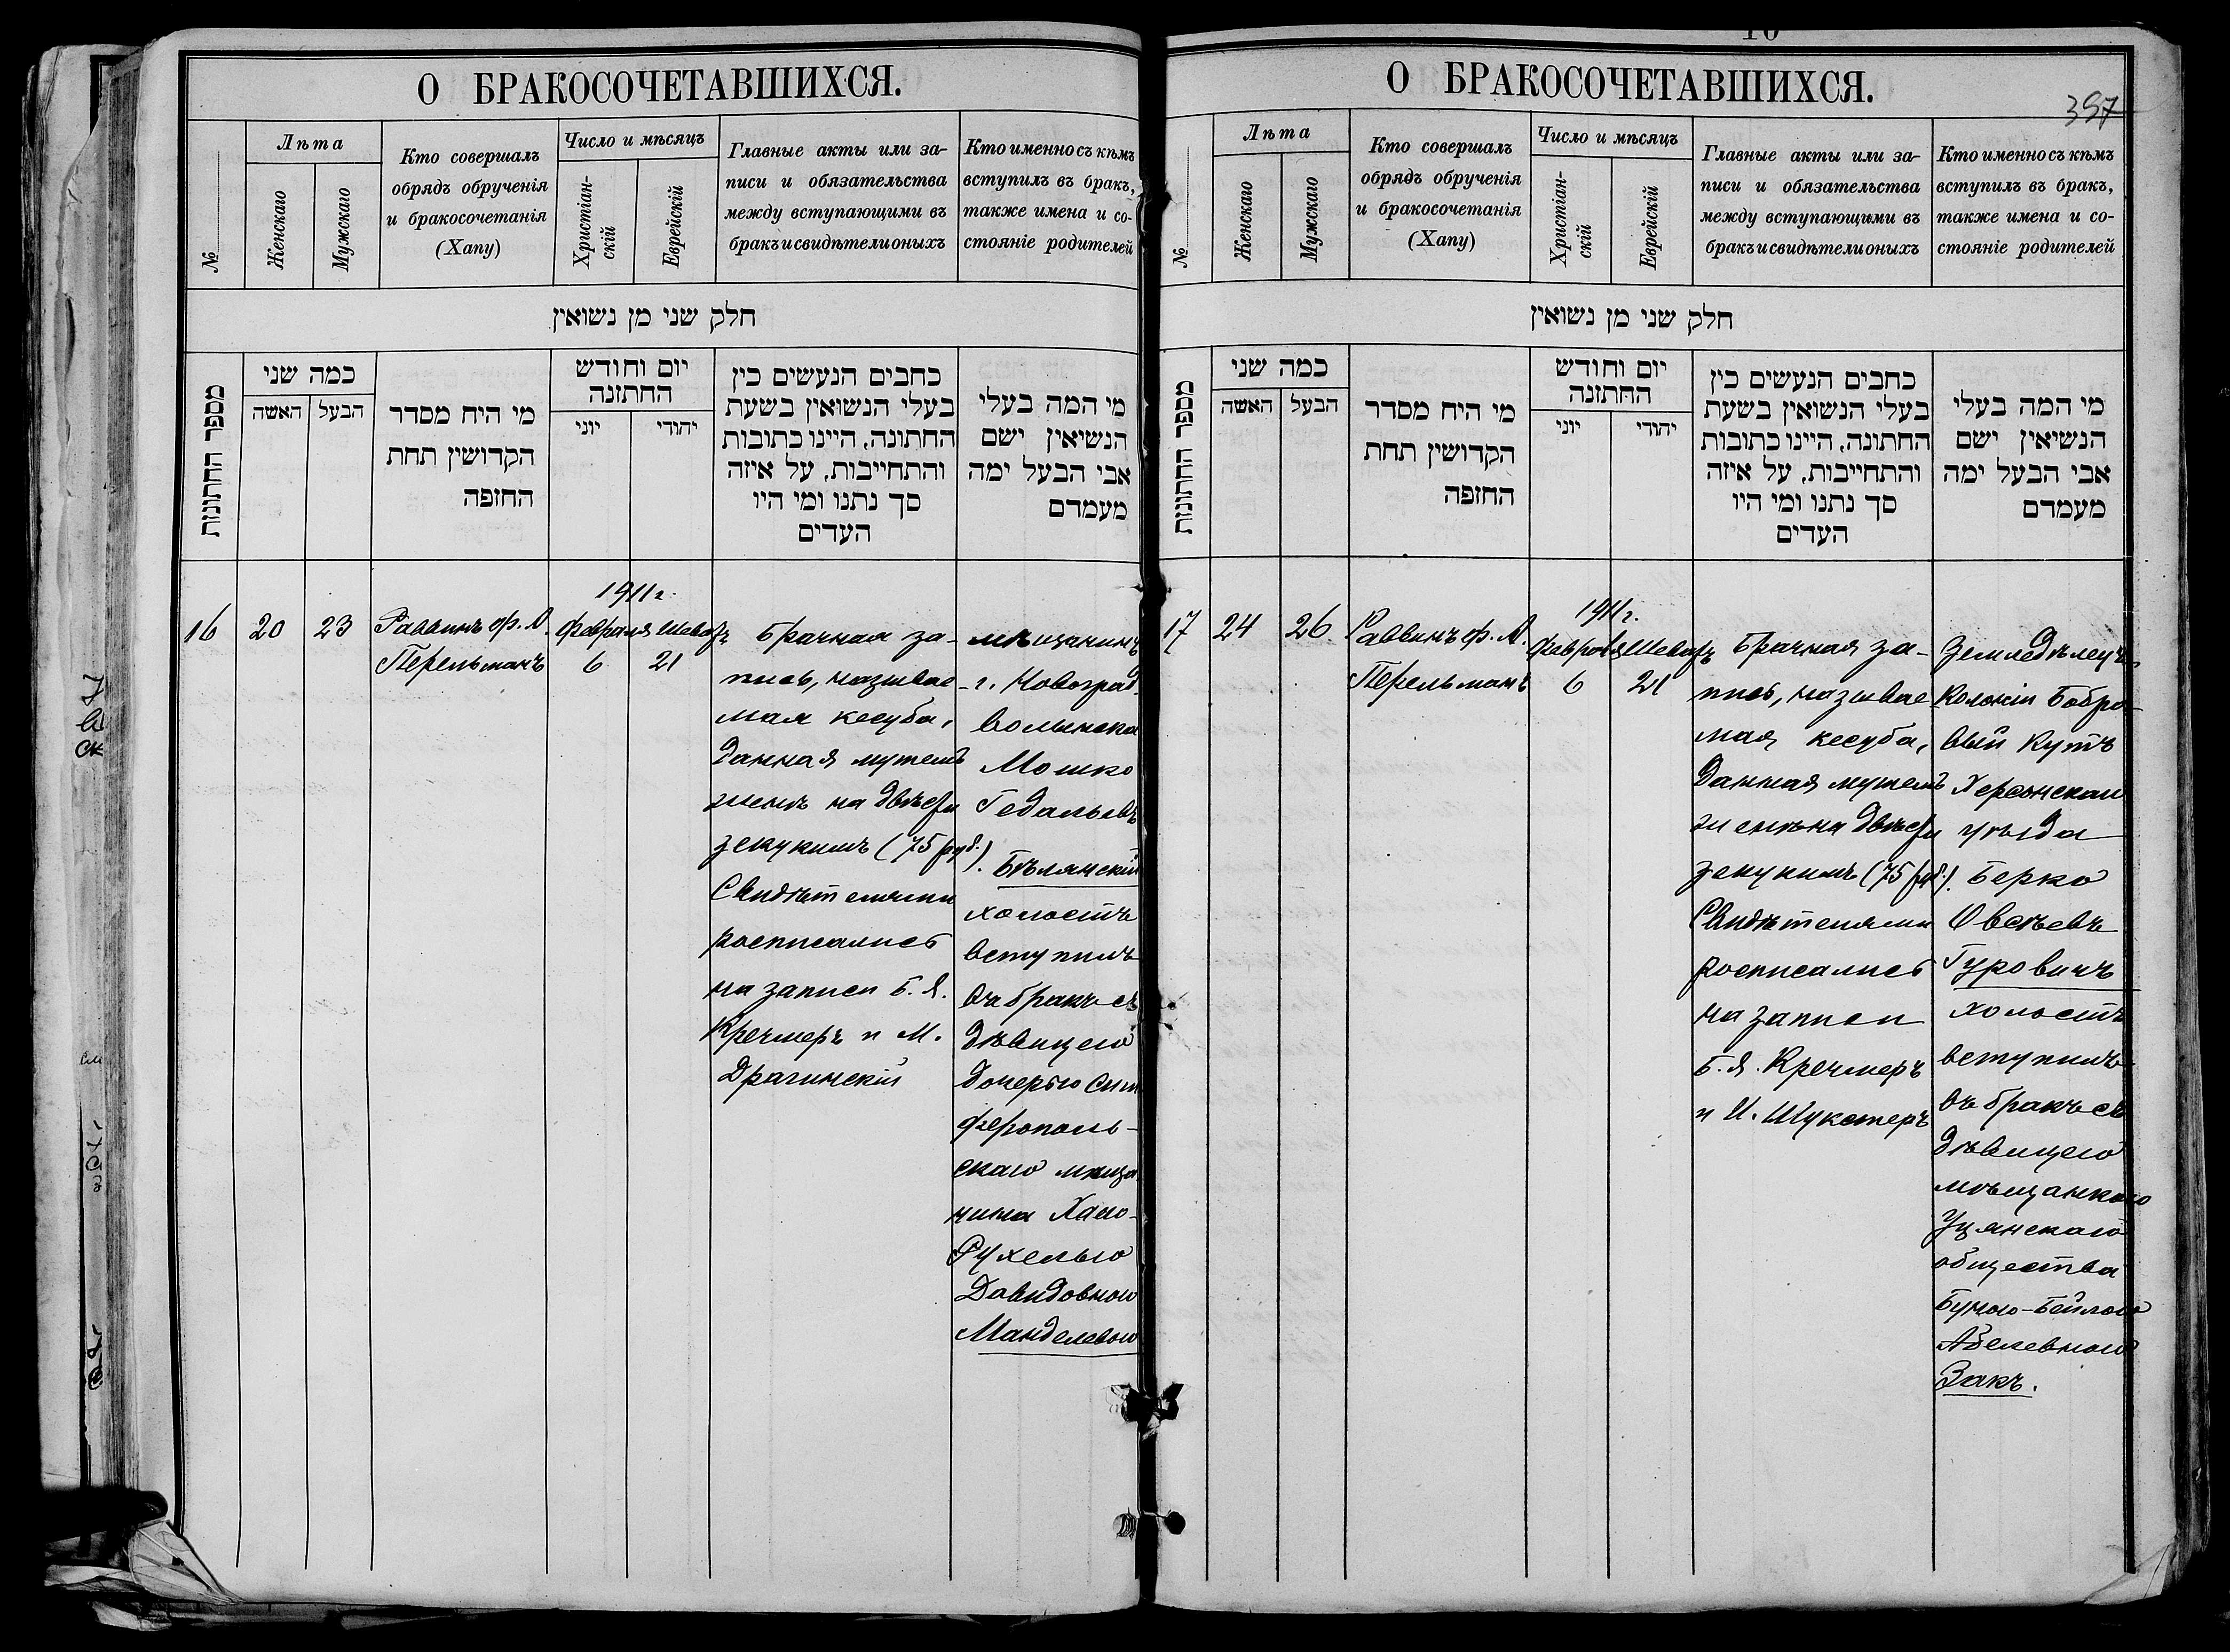 О БРАКОСОЧЕТАВШИХСЯ.
№
Лѣта
Женскаго
Мужскаго
Кто совершалъ
обрядъ обрученія
и бракосочетанія
(Хапу)
Число и мѣсяцъ
Христіан-
скій
Еврейскій
Главные акты или за-
писи и обязательства
между вступающими въ
бракъ и свидѣтели оныхъ
Кто именно съ кѣмъ
вступилъ въ бракъ,
также имена и со-
стояніе родителей
חלק שני מן נשואין
מספר החתונות
כמה שני
האשה
הבעל
מי היח מסדר
הקדושין תחת
החופה
יום וחודש
החתזנה
יוני
יהודי
כחבים הנעשים כין
בעלי הנשואין בשעת
החתונה, היינו כתובות
והתחייבות, על איזה
סך נתנו ומי היו
העדים
מי המה בעלי
הנשיאין ישם
אבי הבעל ימה
מעמדם
16
20
23
Раввинъ Ф. А.
Перельманъ
1911 г.
Февраля Шеватъ
6 21
Брачная за-
пись, называе-
мая кесуба,
данная мужемъ
женѣ на двѣсти
зекукимъ (75 руб.).
Свидѣтелями
росписались
на записи Б. Я.
Кречмеръ и М.
Драгинскій
Мѣщанинъ
г. Новоград-
волынска
Мошко
Гедальевъ
Бѣлянскій
холостъ
вступилъ
въ бракъ съ
дѣвицею
дочерью Сим
ферополь-
скаго мѣща
нина Хаею-
Рухелью
Давидовною
Манделевою
О БРАКОСОЧЕТАВШИХСЯ.
397
№
Лѣта
Женскаго
Мужскаго
Кто совершалъ
обрядъ обрученія
и бракосочетанія
(Хапу)
Число и мѣсяцъ
Христіан-
скій
Еврейскій
Главные акты или за-
писи и обязательства
между вступающими въ
бракъ и свидѣтели оныхъ
Кто именно съ кѣмъ
вступилъ въ бракъ,
также имена и со-
стояніе родителей
חלק שני מן נשואין
מספר החתונות
כמה שני
האשה
הבעל
מי היח מסדר
הקדושין תחת
החופה
יום וחודש
החתזנה
יוני
יהודי
כחבים הנעשים כין
בעלי הנשואין בשעת
החתונה, היינו כתובות
והתחייבות, על איזה
סך נתנו ומי היו
העדים
מי המה בעלי
הנשיאין ישם
אבי הבעל ימה
מעמדם
17
24
26
Раввинъ Ф. А.
Перельманъ
1911 г.
Февраля Шеватъ
6 21
Брачная за-
пись, называе-
мая кесуба,
данная мужемъ
женѣ на двѣсти
зекукимъ (75 руб.).
Свидѣтелями
росписались
на записи
Б. Я. Кречмеръ
и И. Шукстеръ
Земледѣлецъ
Колоніи Бобро-
вый Кутъ
Херсонскаго
уѣзда
Берко
Овсѣевъ
Гуровичъ
холостъ
вступилъ
въ бракъ съ
дѣвицею
мѣщанкою
Уцянскаго
общества
Бунею-Бейлою
Абелевною
Закъ.